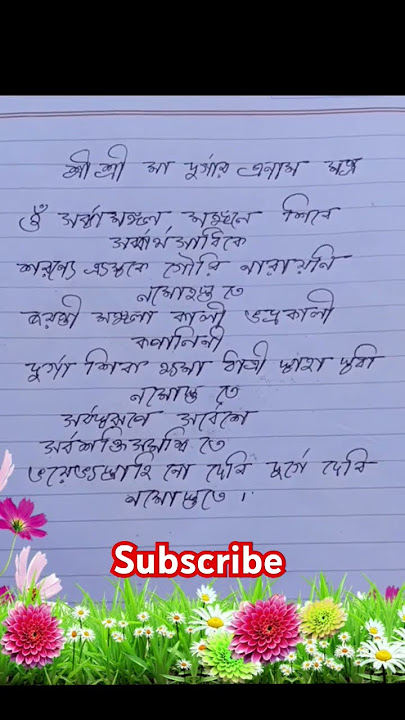 শ্রী শ্রী মা দুর্গার প্রনাম মন্ত্র
ওঁ সর্ব্বমঙ্গল মঙ্গলে শিবে
সর্ব্বার্থসাধিকে
শরণ্যে ত্র্যম্বকে গৌরি নারায়নি
নমোহস্তু তে
জয়ন্তী মঙ্গলা কালী ভদ্রকালী
কপালিনী
দুর্গা শিবা ক্ষমা ধাত্রী স্বাহা স্বধা
নমোস্তু তে
সর্বস্বরূপে সর্বেশে
সর্বশক্তিসমন্বিতে
ভয়েভ্যস্ত্রাহি নো দেবি দুর্গে দেবি
নমোস্তুতে ।
Subscribe